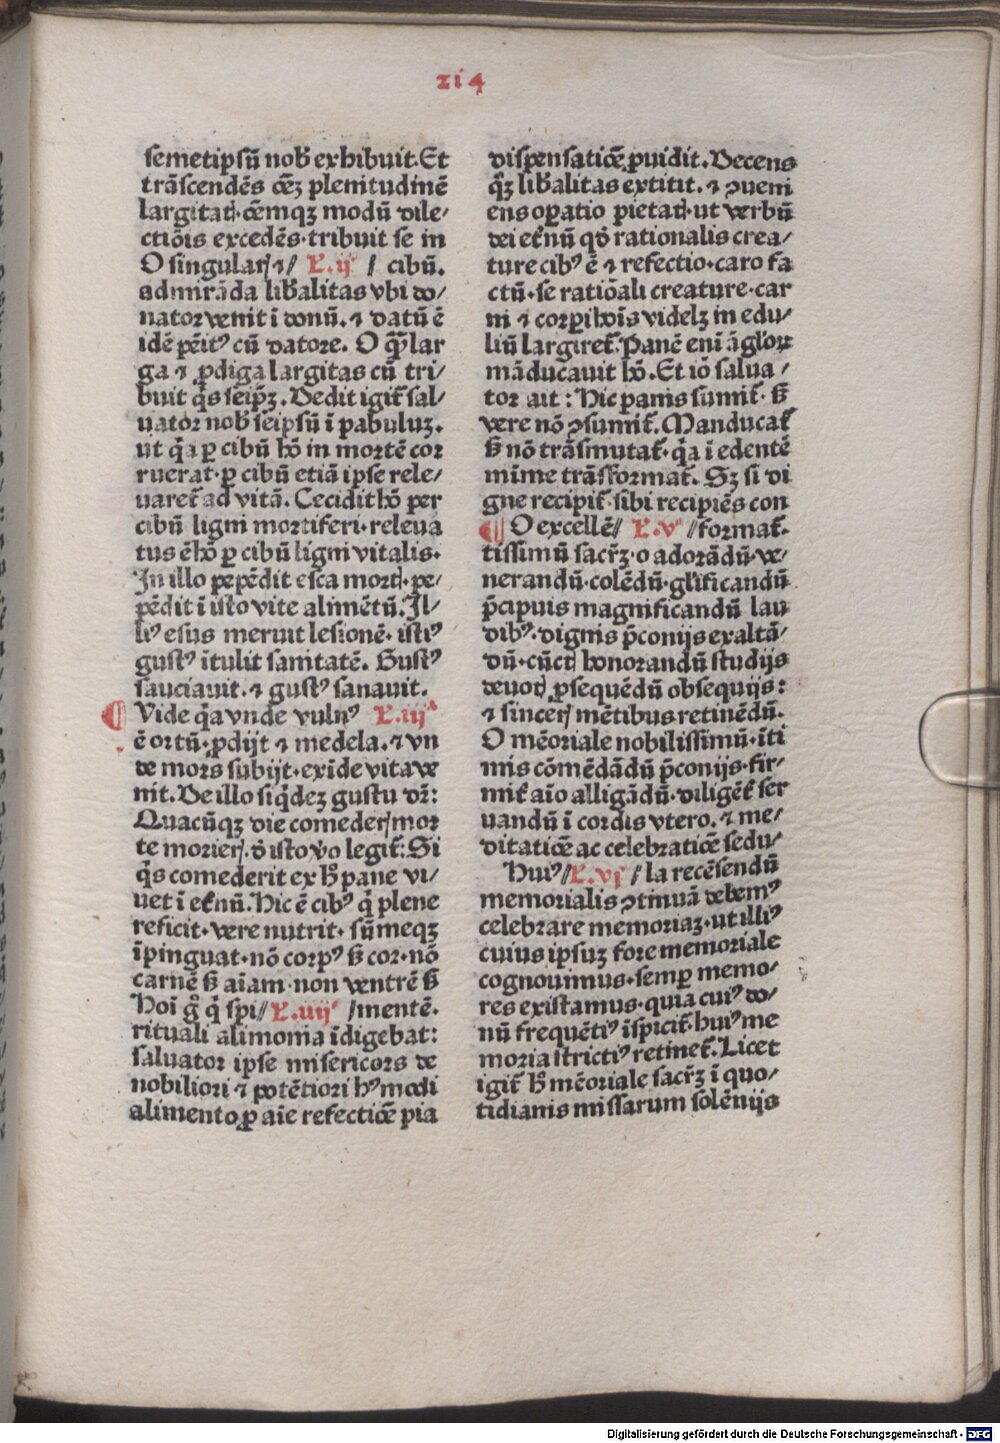 214
semetipsū nob̄ exhibuit. Et
trāscendēs oēꝫ plenitudinē
largitatꝭ. oēmqꝫ modū dile/
ctiōis excedēs. tribuit se in
O singularꝭ ⁊ // L.ijᵃ // cibū.
admirāda lib̄alitas vbi do/
nator venit ī donū. ⁊ datū ē
idē pēitꝰ cū datore. O q̄ꝫ lar
ga ⁊ ꝓdiga largitas cū tri/
buit q̇s seip̄ꝫ. Dedit igit̄ sal/
uator nob̄ seipsū ī pabuluꝫ.
ut q̇a ꝑ cibū hō in mortē cor
ruerat. ꝑ cibū etiā ipse rele/
uaret̄ ad vitā. Cecidit hō per
cibū ligni mortiferi. releua
tus ē hō ꝑ cibū ligni vitalis.
In illo pepēdit esca mortꝭ. pe/
pēdit ī isto vite alimētū. Il/
liꝰ esus meruit lesionē. istiꝰ
gustꝰ ītulit sanitatē. Gustꝰ
sauciauit. ⁊ gustꝰ sanauit.
Vide q̇a vnde vulnꝰ L.iijᵃ
ē ortū. ꝓdijt ⁊ medela. ⁊ vn
de mors subijt. exīde vita ve
nit. De illo siq̇deꝫ gustu dr̄:
Quacūqꝫ die comederꝭ mor
te morierꝭ. d̄ isto ṽo legit̄: Si
q̇s comederit ex h̄ pane vi/
uet ī et̄nū. Hic ē cibꝰ q̇ plene
reficit. vere nutrit. sūmeqꝫ
īpinguat. nō corpꝰ ꝫ̄ cor. nō
carnē ꝫ̄ aīam. non ventrē ꝫ̄
Hoī g̊ q̇ spi// L.iiijᵃ /mentē.
rituali alimonia īdigebat:
saluator ipse misericors de
nobiliori ⁊ potētiori hꝰmodi
alimento ꝓ aīe refectiōe pia
dispensatiōe ꝓuidit. Decens
q̄ꝫ lib̄alitas extitit. ⁊ ꝯueni
ens oꝑatio pietatꝭ. ut verbū
dei et̄nū qd̄ rationalis crea/
ture cibꝰ ē ⁊ refectio. caro fa
ctū. se ratiōali creature. car
ni ⁊ corꝑi hoīs videlꝫ in edu/
liū largiret̄. Panē enī āgloꝝ
māducauit hō. Et iō salua/
tor ait: Hic panis sumit̄. ꝫ̄
vere nō ꝯsumit̄. Manducat̄
ꝫ̄ nō trāsmutat̄. q̇a ī edentē
mīme trāsformat̄. Sꝫ si di
gne recipit̄. sibi recipiēs con
O excellē// L.vᵃ //format̄.
tissimū sacr̄ꝫ. o adorādū. ve/
nerandū. colēdū. gl̄ificandū
p̄cipuis magnificandū lau
dibꝰ. dignis p̄conijs exaltā/
dū. cūctꝭ honorandū studijs
deuotꝭ ꝓsequēdū obsequijs:
⁊ sincerꝭ mētibus retinēdū.
O mēoriale nobilissimū. īti
mis cōmēdādū p̄conijs. fir/
mit̄ aīo alligādū. diligēt̄ ser
uandū ī cordis vtero. ⁊ me/
ditatiōe ac celebratiōe sedu/
Huiꝰ// L.vjᵃ //la recēsendū
memorialis ꝯtinuā debemꝰ
celebrare memoriaꝫ. ut illiꝰ
cuius ipsuꝫ fore memoriale
cognouimus. semꝑ memo/
res existamus. quia cuiꝰ do/
nū frequētiꝰ īspicit̄. huiꝰ me
moria strictiꝰ retinet̄. Licet
igit̄ h̄ mēoriale sacr̄ꝫ ī quo/
tidianis missarum solēnijs
Digitalisierung gefördert durch die Deutsche Forschungsgemeinschaft - DFG